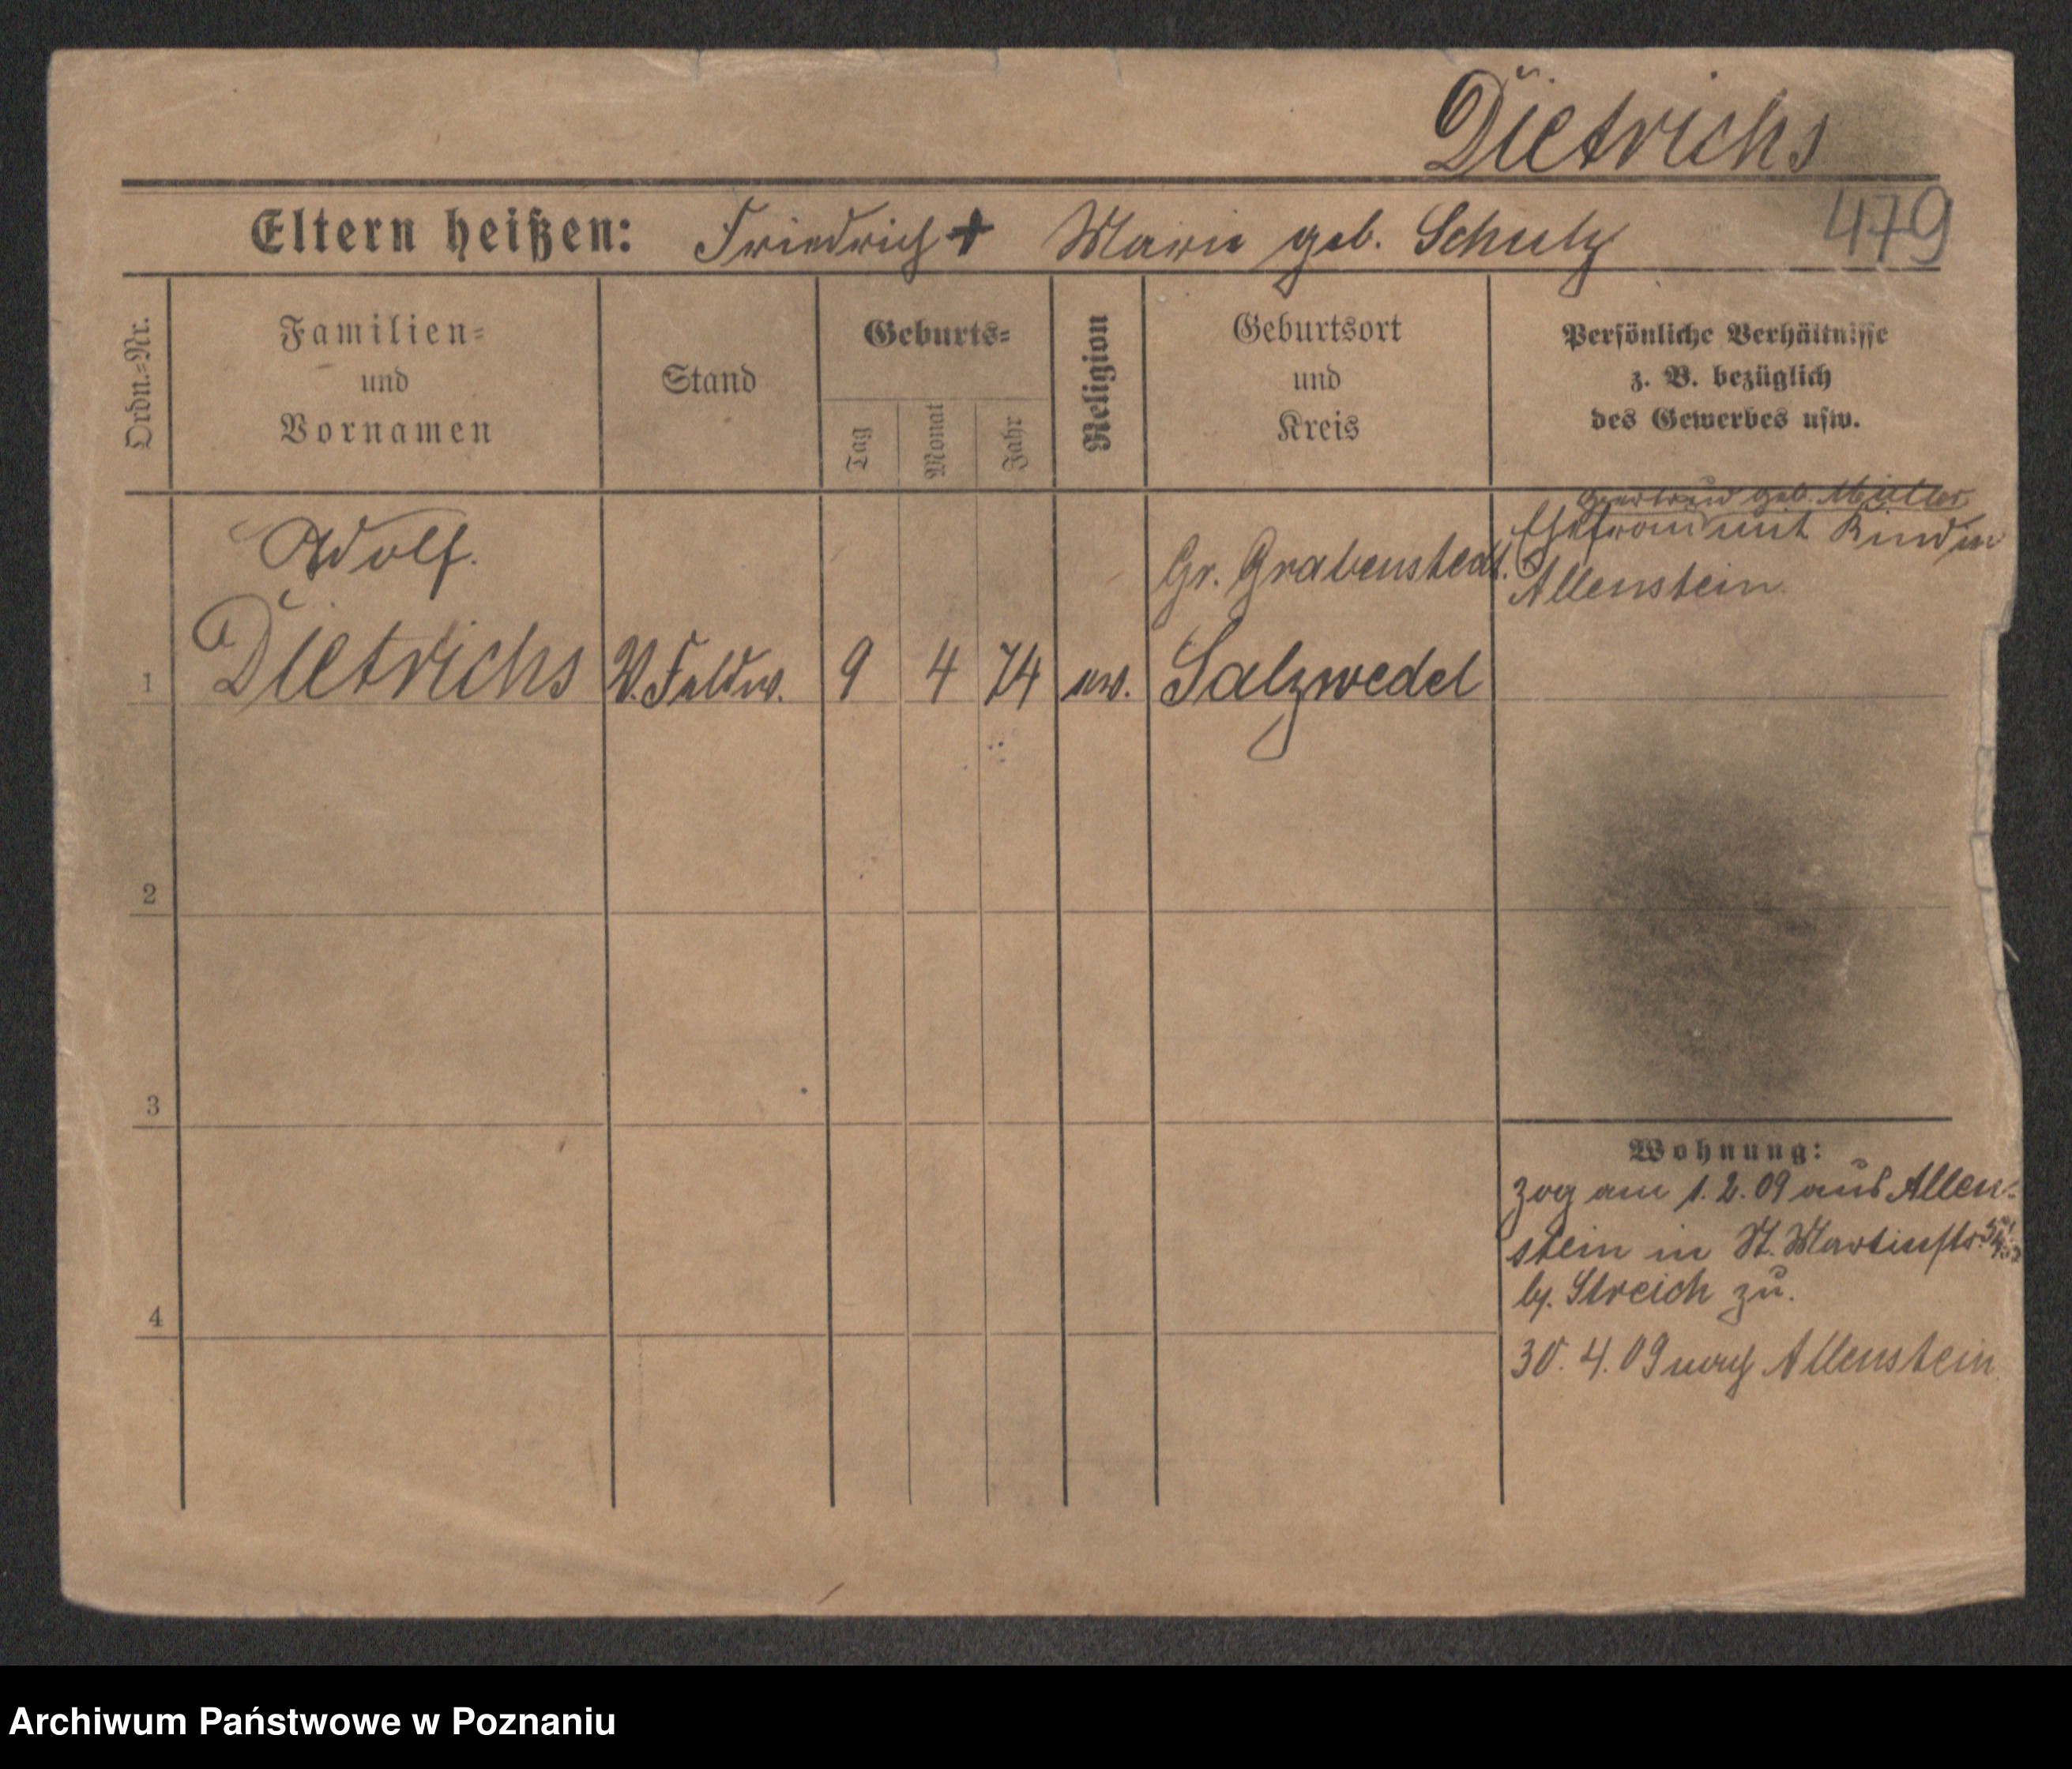 Dietrichs
479
Eltern heißen: Friedrich + Marie geb. Schulz
Ordn.=Nr.
Familien=
und
Vornamen
Stand
Geburts=
Tag
Monat
Jahr
Religion
Geburtsort
und
Kreis
Persönliche Verhältnisse
z. B. bezüglich
des Gewerbes usw.
Gertrud geb. Müller
Ehefrau mit Kind in
Allenstein
Adolf.
Gr. Grabenstedt.
1 Dietrichs V. Feldw. 9 4 74 ev. Salzwedel
2
3
4
Wohnung:
zog am 1. 2. 09 aus Allen=
stein in St. Martinstr.
b/. Streich zu.
30. 4. 09 nach Allenstein
Archiwum Państwowe w Poznaniu